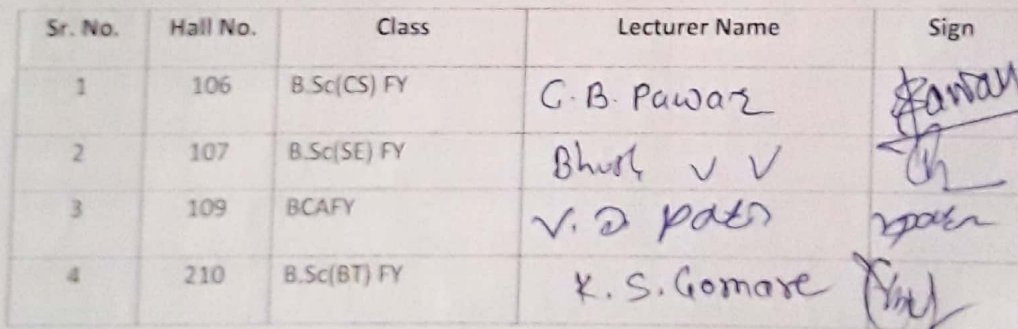 Sr. No. Hall No. Class Lecturer Name Sign
1 106 B.Sc(CS) FY C. B. Pawar
2 107 B.Sc(SE) FY V V
3 109 BCAFY V. D
4 210 B.Sc(BT) FY K. S. Gomare